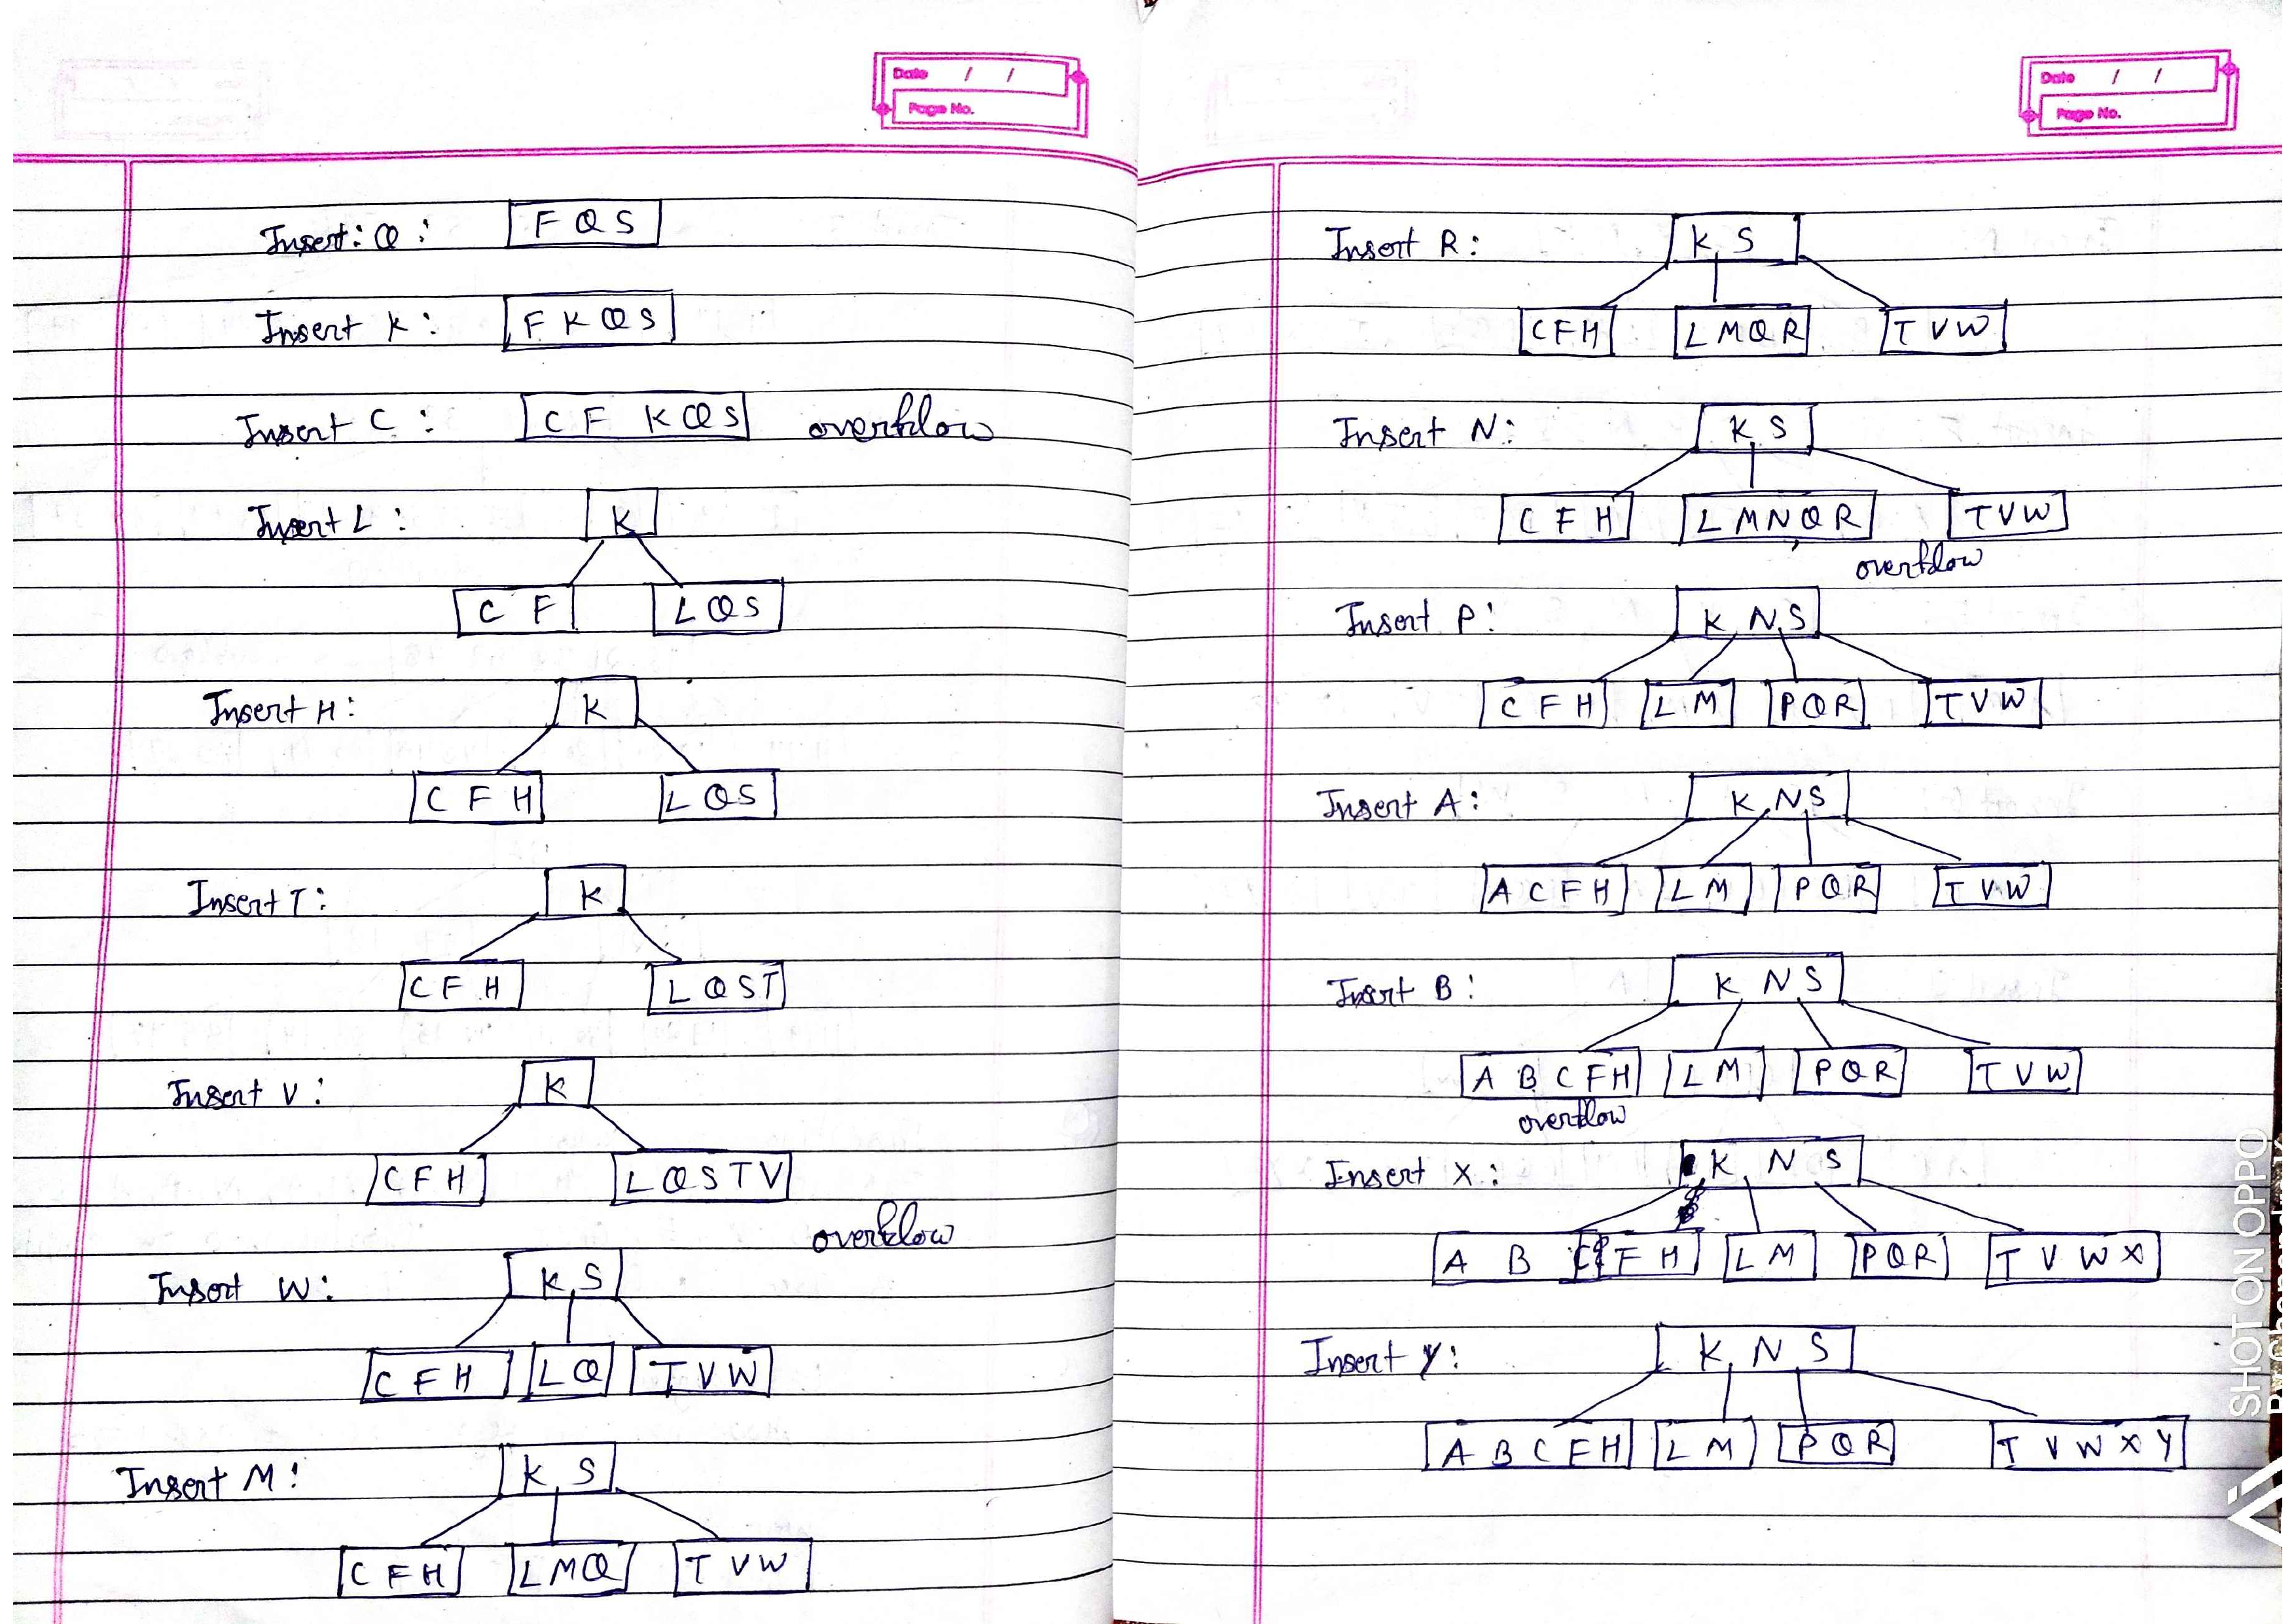 Date / /
Page No.
Insert: Q: F Q S
Insert K: F K Q S
Insert C: C F K Q S overflow
Insert L: K
C F L Q S
Insert H: K
C F H L Q S
Insert T: K
C F H L Q S T
Insert V: K
C F H L Q S T V
overflow
Insert W: K S
C F H L Q T V W
Insert M: K S
C F H L M Q T V W
Date / /
Page No.
Insert R: K S
C F H L M Q R T V W
Insert N: K S
C F H L M N Q R T V W
overflow
Insert P: K N S
C F H L M P Q R T V W
Insert A: K N S
A C F H L M P Q R T V W
Insert B: K N S
A B C F H L M P Q R T V W
overflow
Insert X: K N S
A B C F H L M P Q R T V W X
Insert Y: K N S
A B C F H L M P Q R T V W X Y
SHOT ON OPPO